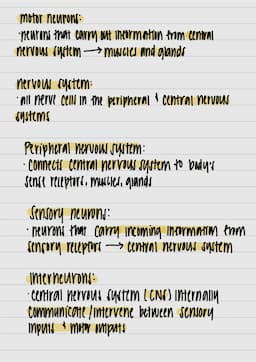 motor neurons:
· neurons that carry out information from central
nervous system → muscles and glands
nervous system:
· all nerve cells in the peripheral & central nervous
systems
Peripheral nervous system:
· Connects central nervous system to body's
sense receptors, muscles, glands
Sensory neurons:
· neurons that carry incoming information from
sensory receptors → central nervous system
Interneurons:
· central nervous system (CNS) internally
communicate/intervene between sensory
inputs & motor outputs